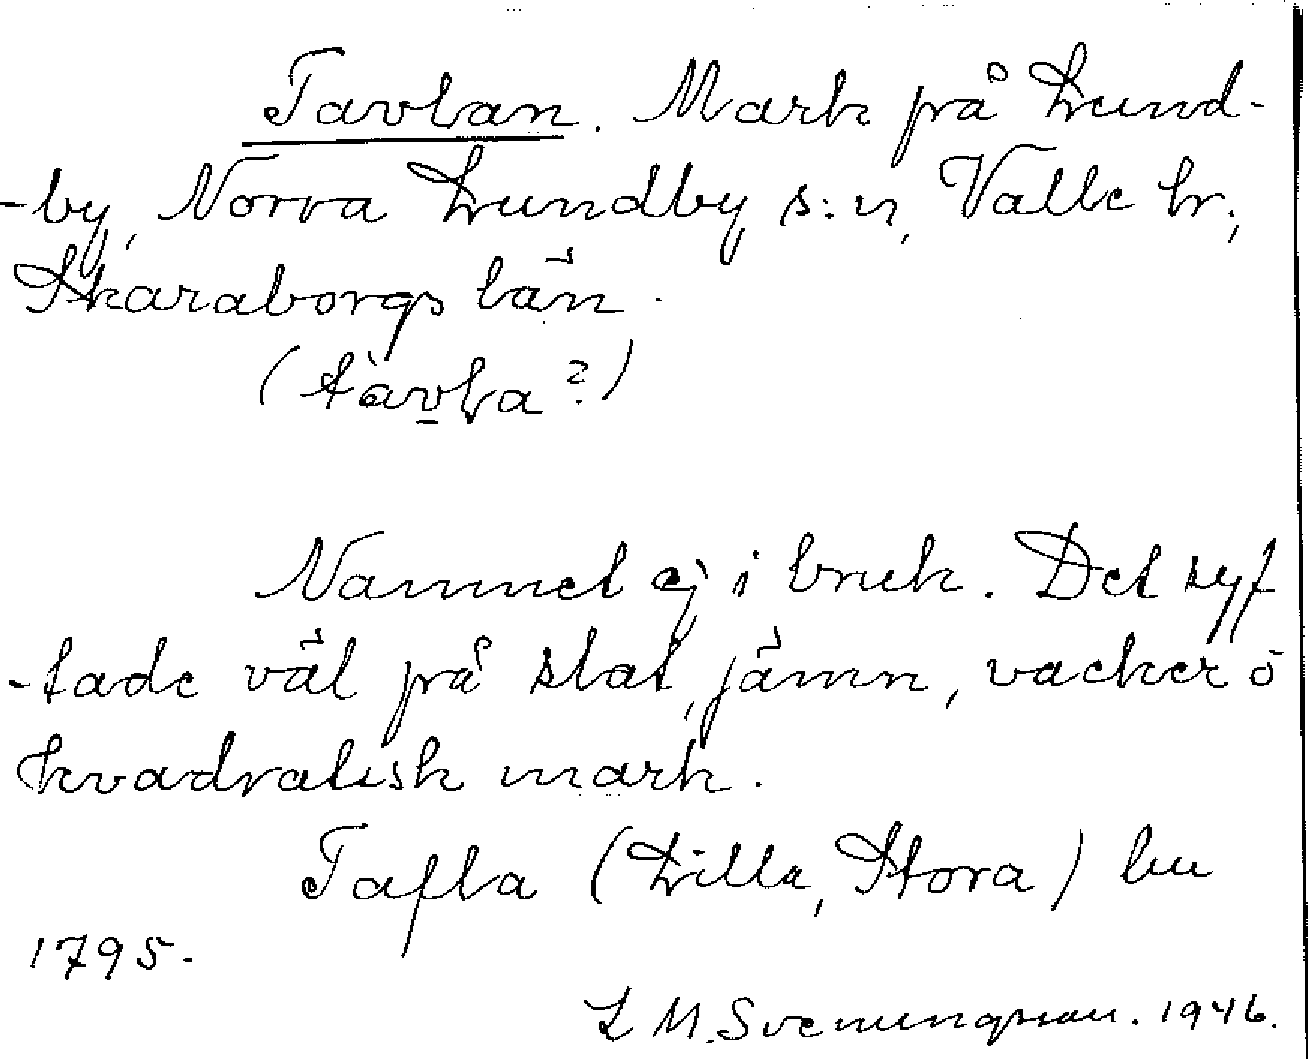 Tavlan. Mark på Lund-
-by, Norra Lundby s:n, Valle hr,
Skaraborgs län.
(tàvla?)
Namnet ej i bruk. Det syf
-tade väl på slät, jämn, vacker o
kvadratisk mark.
Tafla (Lilla, Stora) lm
1795.
L M. Svenungsson. 1946.